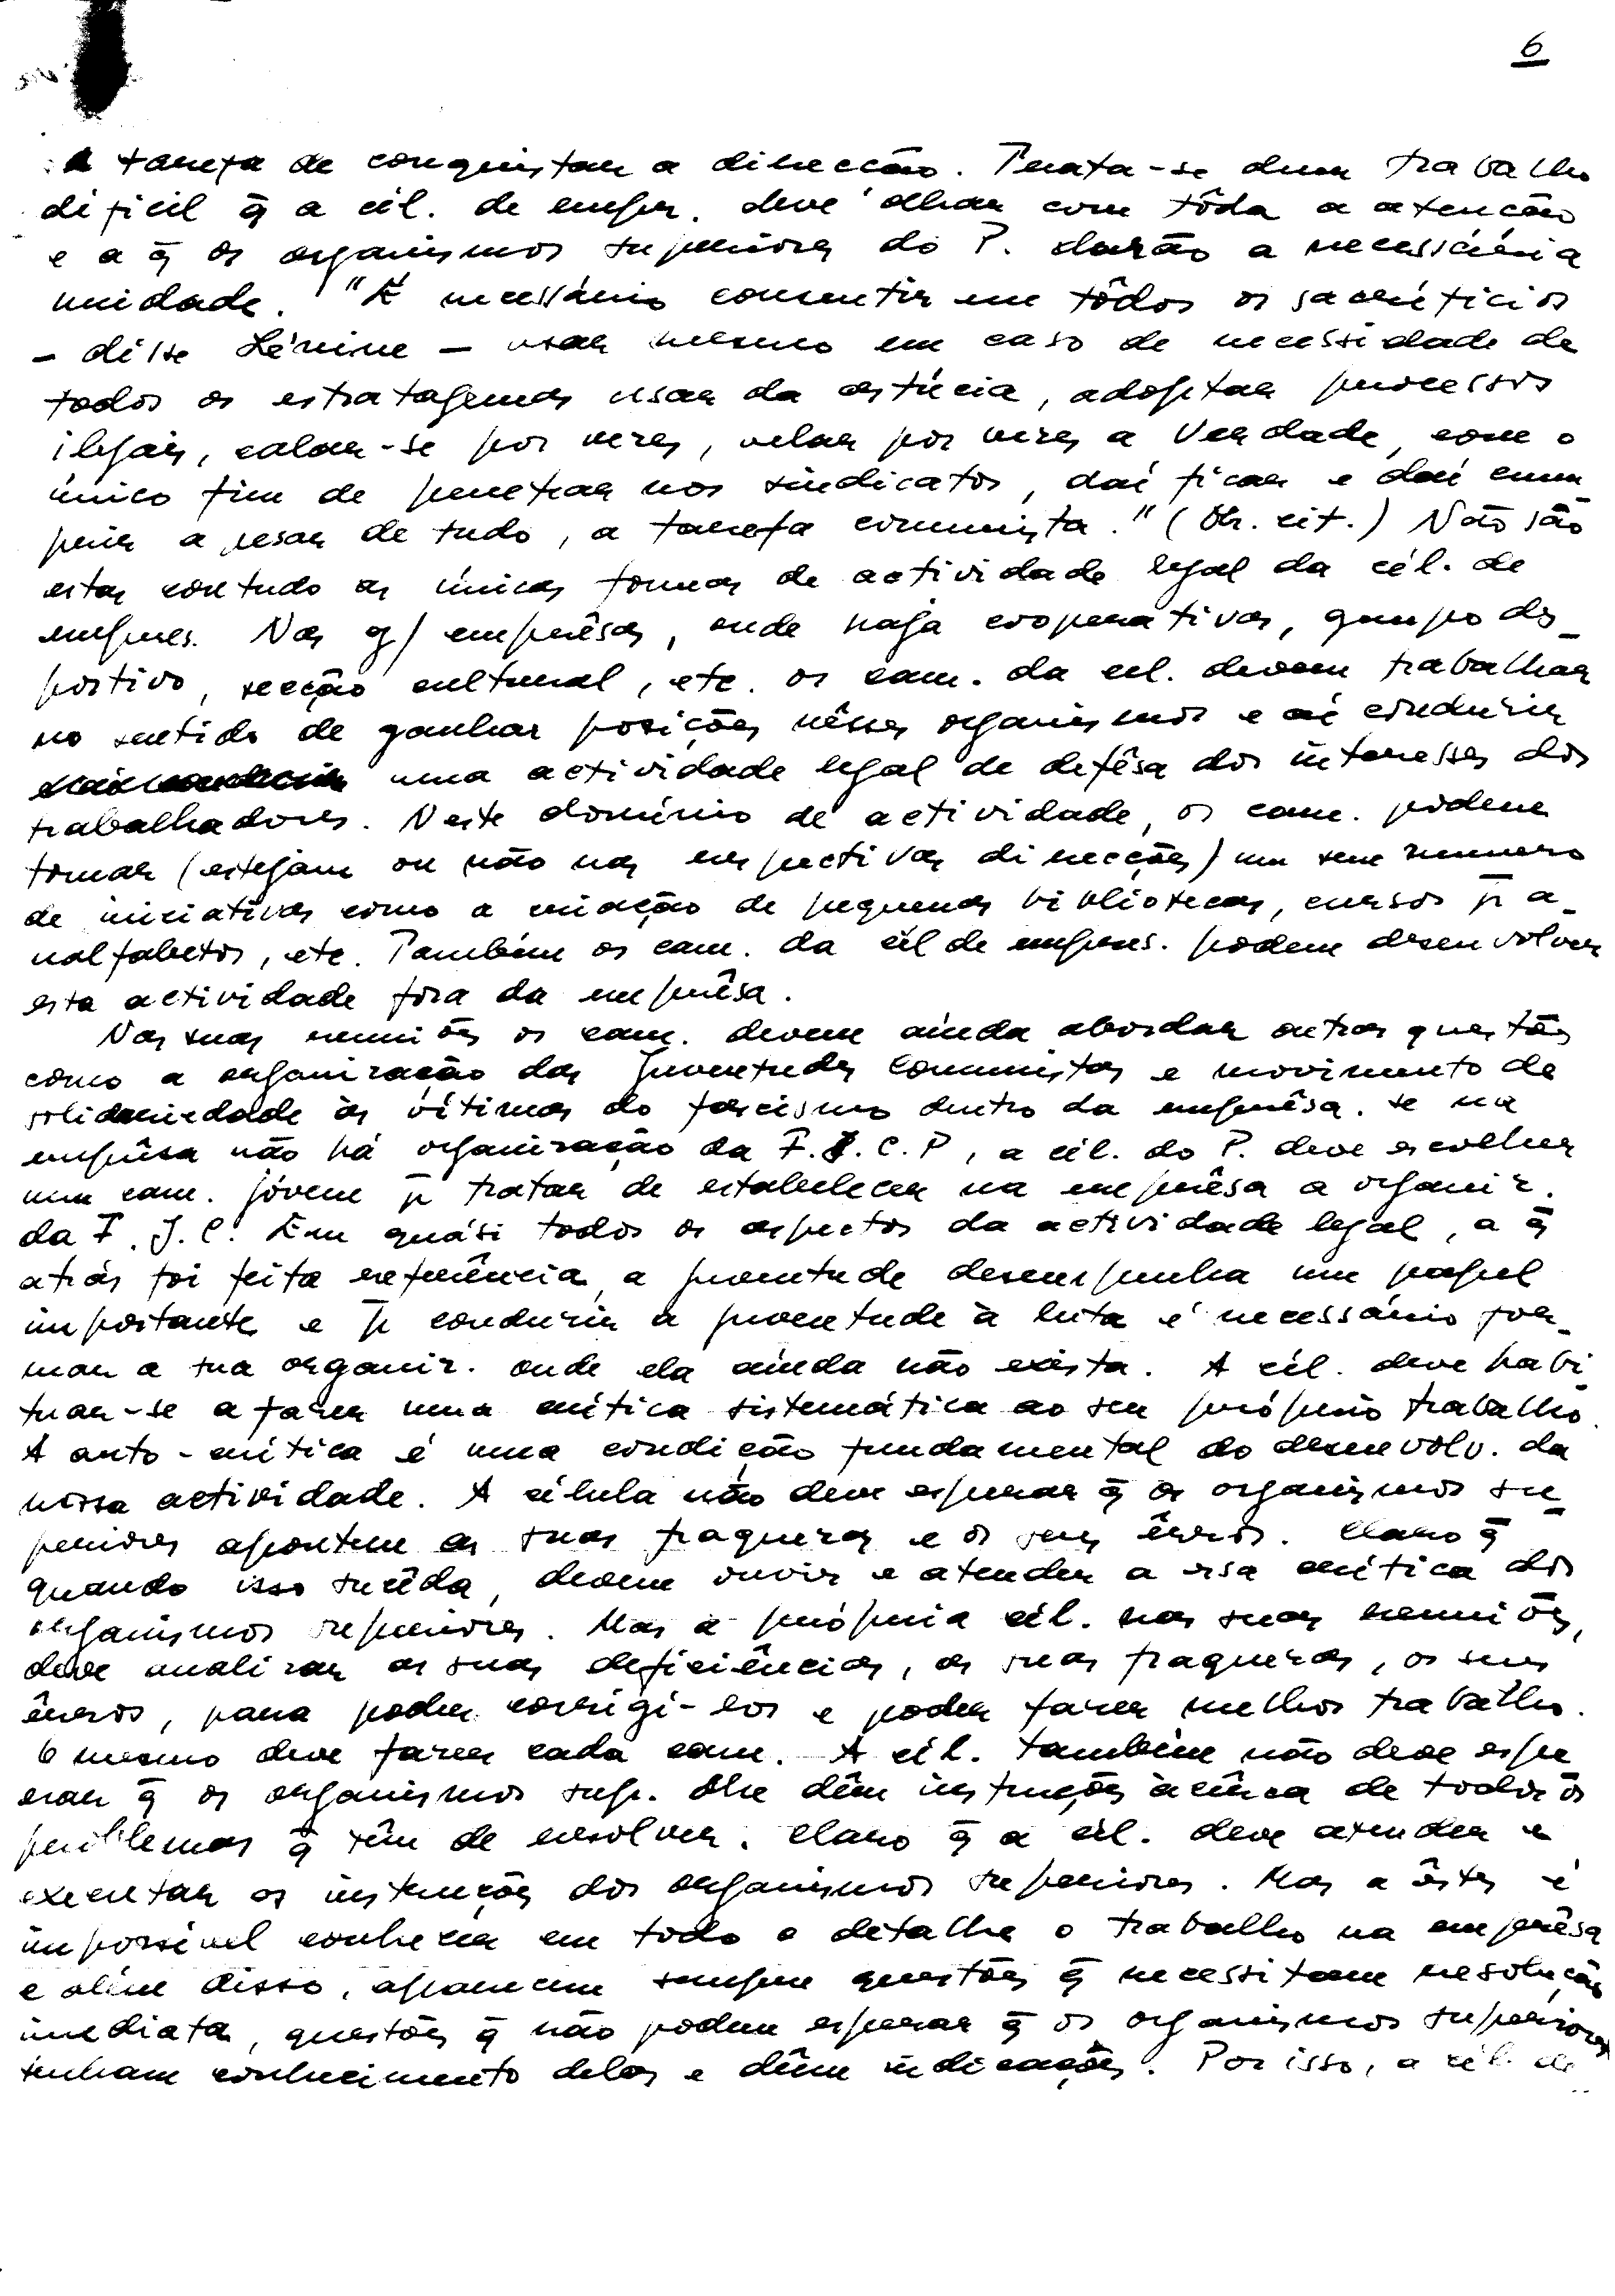 6
A tarefa de conquistar a direcção. Trata-se dum trabalho
dificil q̄ a cél. de empr. deve olhar com tôda a atenção
e a q̄ os organismos superiores do P. darão a necessária
unidade. "É necessário consentir em tôdos os sacrifícios
- disse Lénine - usar mesmo em caso de necessidade de
todos os estratagemas usar da astúcia, adoptar processos
ilegais, calar-se por vezes, velar por vezes a Verdade, com o
único fim de penetrar nos sindicatos, daí ficar e daí cum
prir a pesar de tudo, a tarefa comunista." (Ob. cit.) Não são
estas contudo as únicas formas de actividade legal da cél. de
empres. Nas g/ emprêsas, onde haja cooperativas, grupo des_
portivo, secção cultural, etc. os cam. da cél. devem trabalhar
no sentido de ganhar posições nêsses organismos e aí conduzir
uma actividade legal de defêsa dos interesses dos
trabalhadores. Neste domínio de actividade, os cam. podem
tomar (estejam ou não nas respectivas direcções) um sem numero
de iniciativas como a criação de pequenas bibliotecas, cursos p̄ a_
nalfabetos, etc. Também os cam. da cél de empres. podem desenvolver
esta actividade fora da emprêsa.
Nas suas reuniões os cam. devem ainda abordar outras questões
como a organização das Juventudes Comunistas e movimento de
solidariedade às vítimas do fascismo dentro da emprêsa. Se na
emprêsa não há organização da F.J.C.P, a cél. do P. deve escolher
um cam. jóvem p̄ tratar de estabelecer na emprêsa a organiz.
da F.J.C. Em quási todos os aspectos da actividade legal, a q̄
atrás foi feita referência, a juventude desempenha um papel
importante e p̄ conduzir a juventude à luta é necessário for_
mar a sua organiz. onde ela ainda não exista. A cél. deve habi_
tuar-se a fazer uma crítica sistemática ao seu próprio trabalho.
A auto-crítica é uma condição fundamental do desenvolv. da
nossa actividade. A célula não deve esperar q̄ os organismos su_
periores apontem as suas fraquezas e os seus êrros. Claro q̄
quando isso sucêda, devem ouvir e atender a essa crítica dos
organismos superiores. Mas a própria cél. nas suas reuniões,
deve analizar as suas deficiências, as suas fraquezas, os seus
êrros, para poder corrigi-los e poder fazer melhor trabalho.
O mesmo deve fazer cada cam. A cél. também não deve espe
rar q̄ os organismos sup. lhe dêm instruções àcêrca de todos os
problemas q̄ têm de resolver. Claro q̄ a cél. deve atender e
executar as instruções dos organismos superiores. Mas a êstes é
impossível conhecer em todo o detalhe o trabalho na emprêsa
e além disso, aparecem sempre questões q̄ necessitam resolução
imediata, questões q̄ não podem esperar q̄ os organismos superiores
tenham conhecimento delas e dêm indicações. Por isso, a cél. de